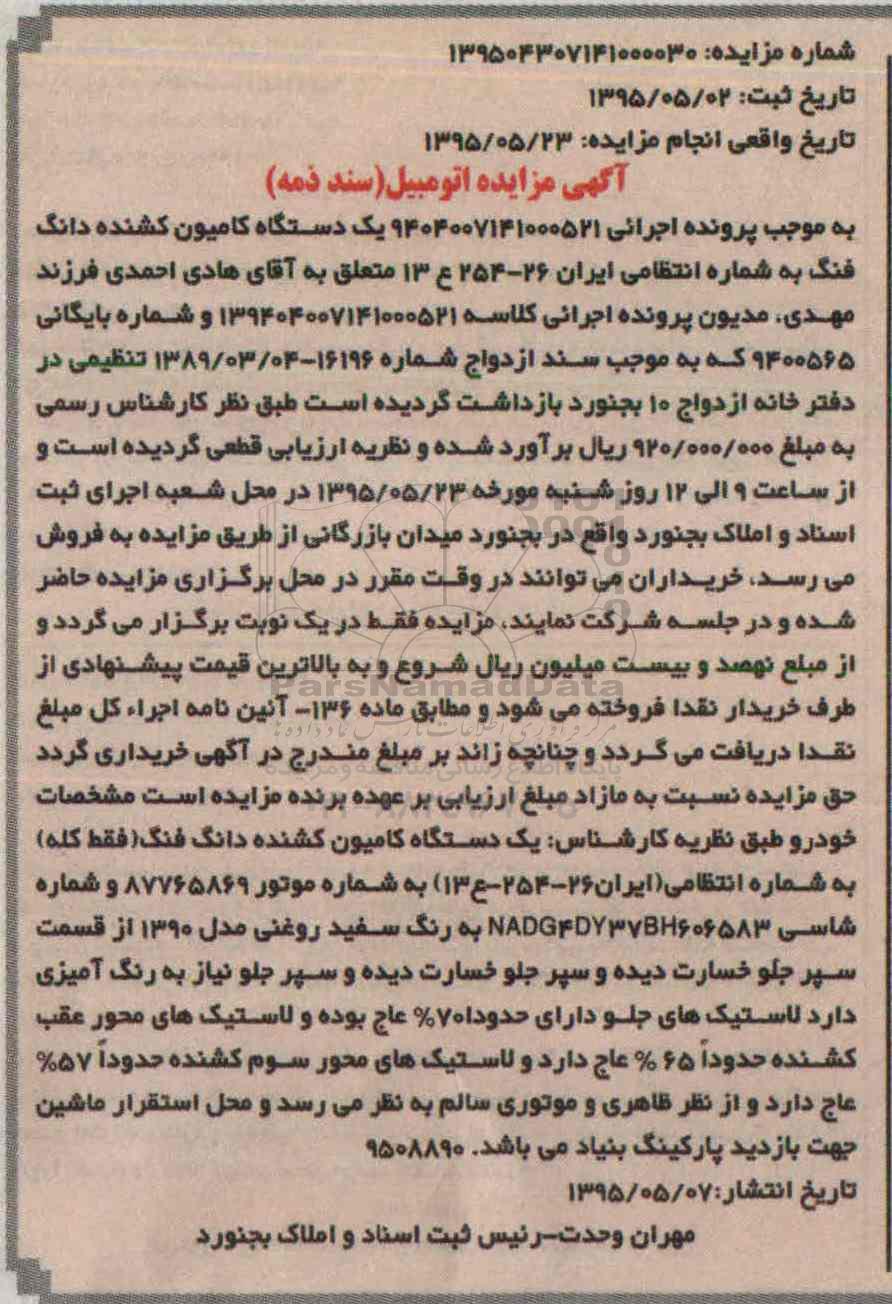 شماره مزایده: ۱۳۹۵۰۴۳۰۷۱۴۱۰۰۰۰۳۰
تاریخ ثبت: ۱۳۹۵/۰۵/۰۲
تاریخ واقعی انجام مزایده: ۱۳۹۵/۰۵/۲۳
آگهی مزایده اتومبیل(سند ذمه)
به موجب پرونده اجرائی ۹۴۰۴۰۰۷۱۴۱۰۰۰۵۲۱ یک دستگاه کامیون کشنده دانگ
فنگ به شماره انتظامی ایران ۲۶-۲۵۴ ع ۱۳ متعلق به آقای هادی احمدی فرزند
مهدی، مدیون پرونده اجرائی کلاسه ۱۳۹۴۰۴۰۰۷۱۴۱۰۰۰۵۲۱ و شماره بایگانی
۹۴۰۰۵۶۵ که به موجب سند ازدواج شماره ۱۶۱۹۶-۱۳۸۹/۰۳/۰۴ تنظیمی در
دفتر خانه ازدواج ۱۰ بجنورد بازداشت گردیده است طبق نظر کارشناس رسمی
به مبلغ ۹۲۰/۰۰۰/۰۰۰ ریال برآورد شده و نظریه ارزیابی قطعی گردیده است و
از ساعت ۹ الی ۱۲ روز شنبه مورخه ۱۳۹۵/۰۵/۲۳ در محل شعبه اجرای ثبت
اسناد و املاک بجنورد واقع در بجنورد میدان بازرگانی از طریق مزایده به فروش
می رسد، خریداران می توانند در وقت مقرر در محل برگزاری مزایده حاضر
شده و در جلسه شرکت نمایند، مزایده فقط در یک نوبت برگزار می گردد و
از مبلغ نهصد و بیست میلیون ریال شروع و به بالاترین قیمت پیشنهادی از
طرف خریدار نقدا فروخته می شود و مطابق ماده ۱۳۶- آئین نامه اجراء کل مبلغ
نقدا دریافت می گردد و چنانچه زائد بر مبلغ مندرج در آگهی خریداری گردد
حق مزایده نسبت به مازاد مبلغ ارزیابی بر عهده برنده مزایده است مشخصات
خودرو طبق نظریه کارشناس: یک دستگاه کامیون کشنده دانگ فنگ(فقط کله)
به شماره انتظامی(ایران۲۶-۲۵۴-ع۱۳) به شماره موتور ۸۷۷۶۵۸۶۹ و شماره
شاسی NADG۴DY۳۷BH۶۰۶۵۸۳ به رنگ سفید روغنی مدل ۱۳۹۰ از قسمت
سپر جلو خسارت دیده و سپر جلو خسارت دیده و سپر جلو نیاز به رنگ آمیزی
دارد لاستیک های جلو دارای حدودا۷۰% عاج بوده و لاستیک های محور عقب
کشنده حدوداً ۶۵ % عاج دارد و لاستیک های محور سوم کشنده حدوداً ۵۷%
عاج دارد و از نظر ظاهری و موتوری سالم به نظر می رسد و محل استقرار ماشین
جهت بازدید پارکینگ بنیاد می باشد. ۹۵۰۸۸۹۰
تاریخ انتشار:۱۳۹۵/۰۵/۰۷
مهران وحدت-رئیس ثبت اسناد و املاک بجنورد
ParsNamadData